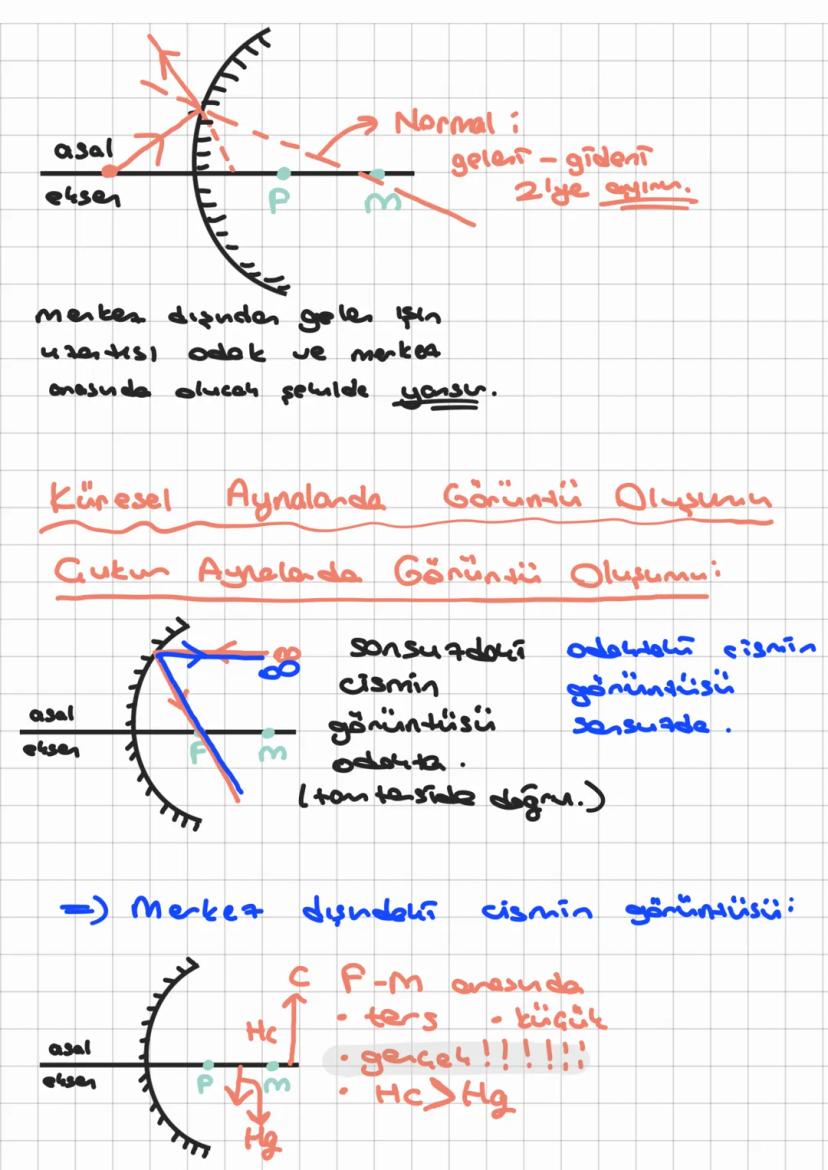 Normal:
geleni-gideni
2'ye ayırır.
asal
eksen
F
M
merkez dışından gelen ışın
uzantısı odak ve merkez
arasında olucak şekilde yansır.
Küresel Aynalarda Görüntü Oluşumu
Çukur Aynalarda Görüntü Oluşumu:
∞
∞
asal
eksen
F
M
sonsuzdaki
cismin
görüntüsü
odakta.
(tam terside doğru.)
odaktaki cismin
görüntüsü
sonsuzda.
=> Merkez dışındaki cismin görüntüsü:
asal
eksen
F
M
C
Hc
Hg
F-M arasında
• ters • küçük
• gerçek!!!!!!
• Hc>Hg